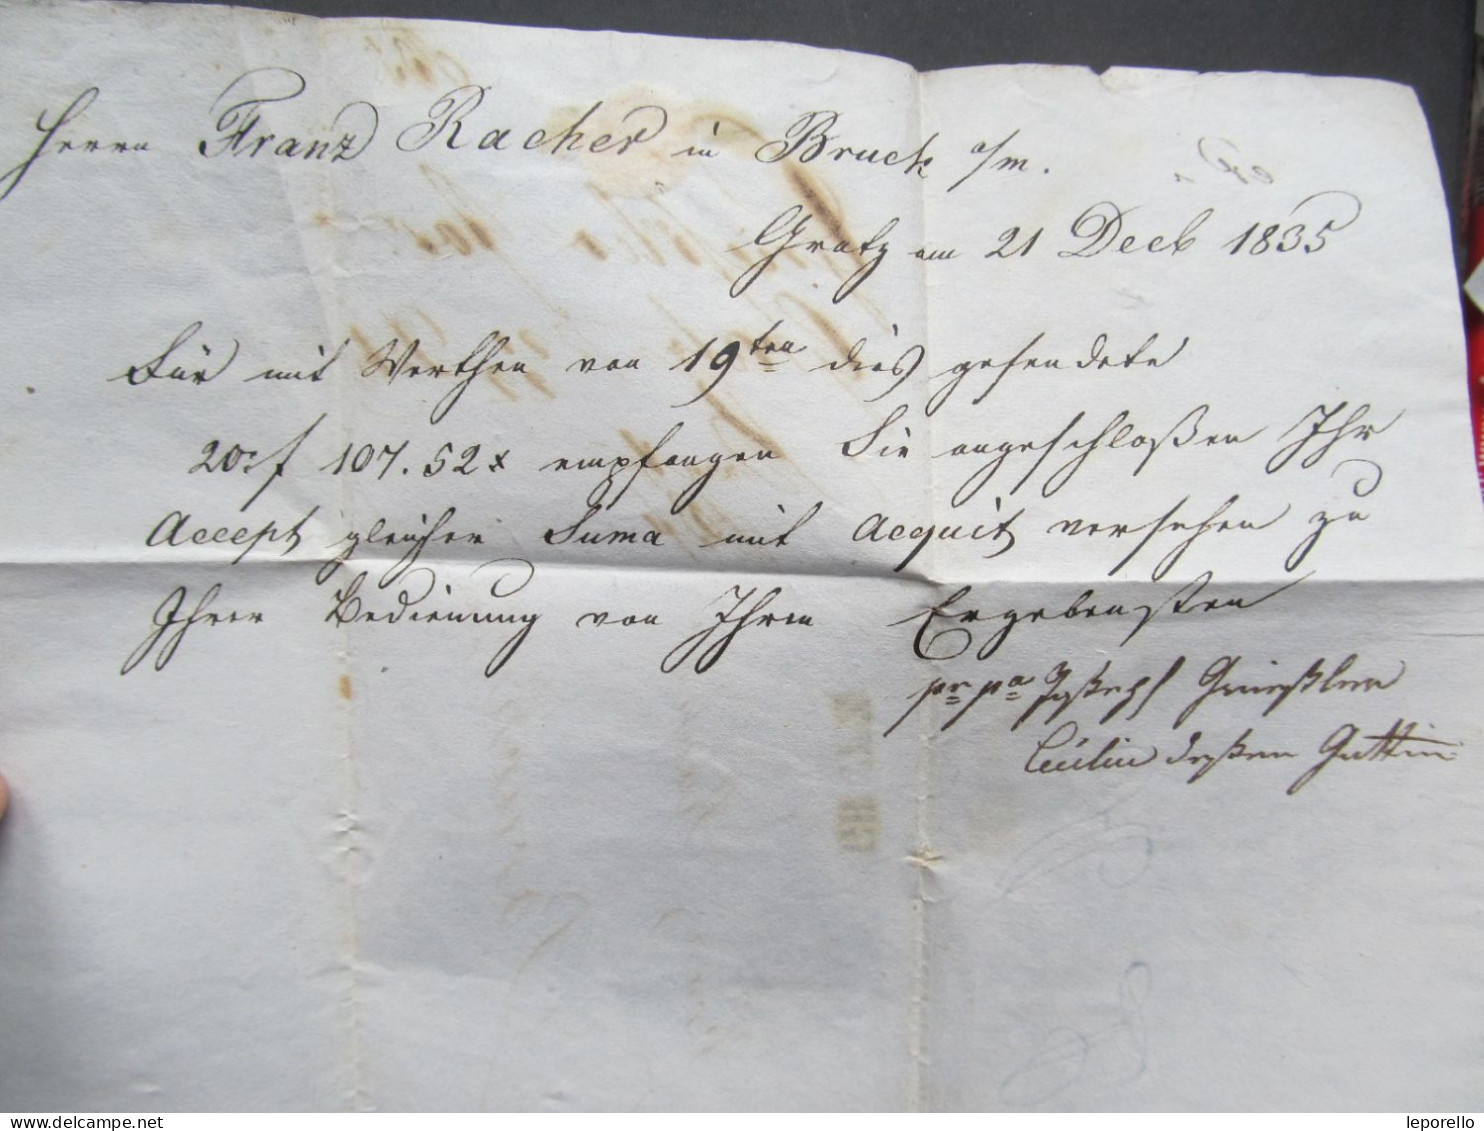 Herrn Franz Racher in Bruck a/m.
Gratz am 21 Decb 1835
Für mit Werthen von 19ten dies gesendete
20r f 107.52x empfangen Sie angeschloßen Ihr
Accept gleicher Suma mit Acquit versehen zu
Ihrer Bedienung von Ihrem Ergebensten
pr pa Joseph
Cäcilia dessen Gattin
leporello